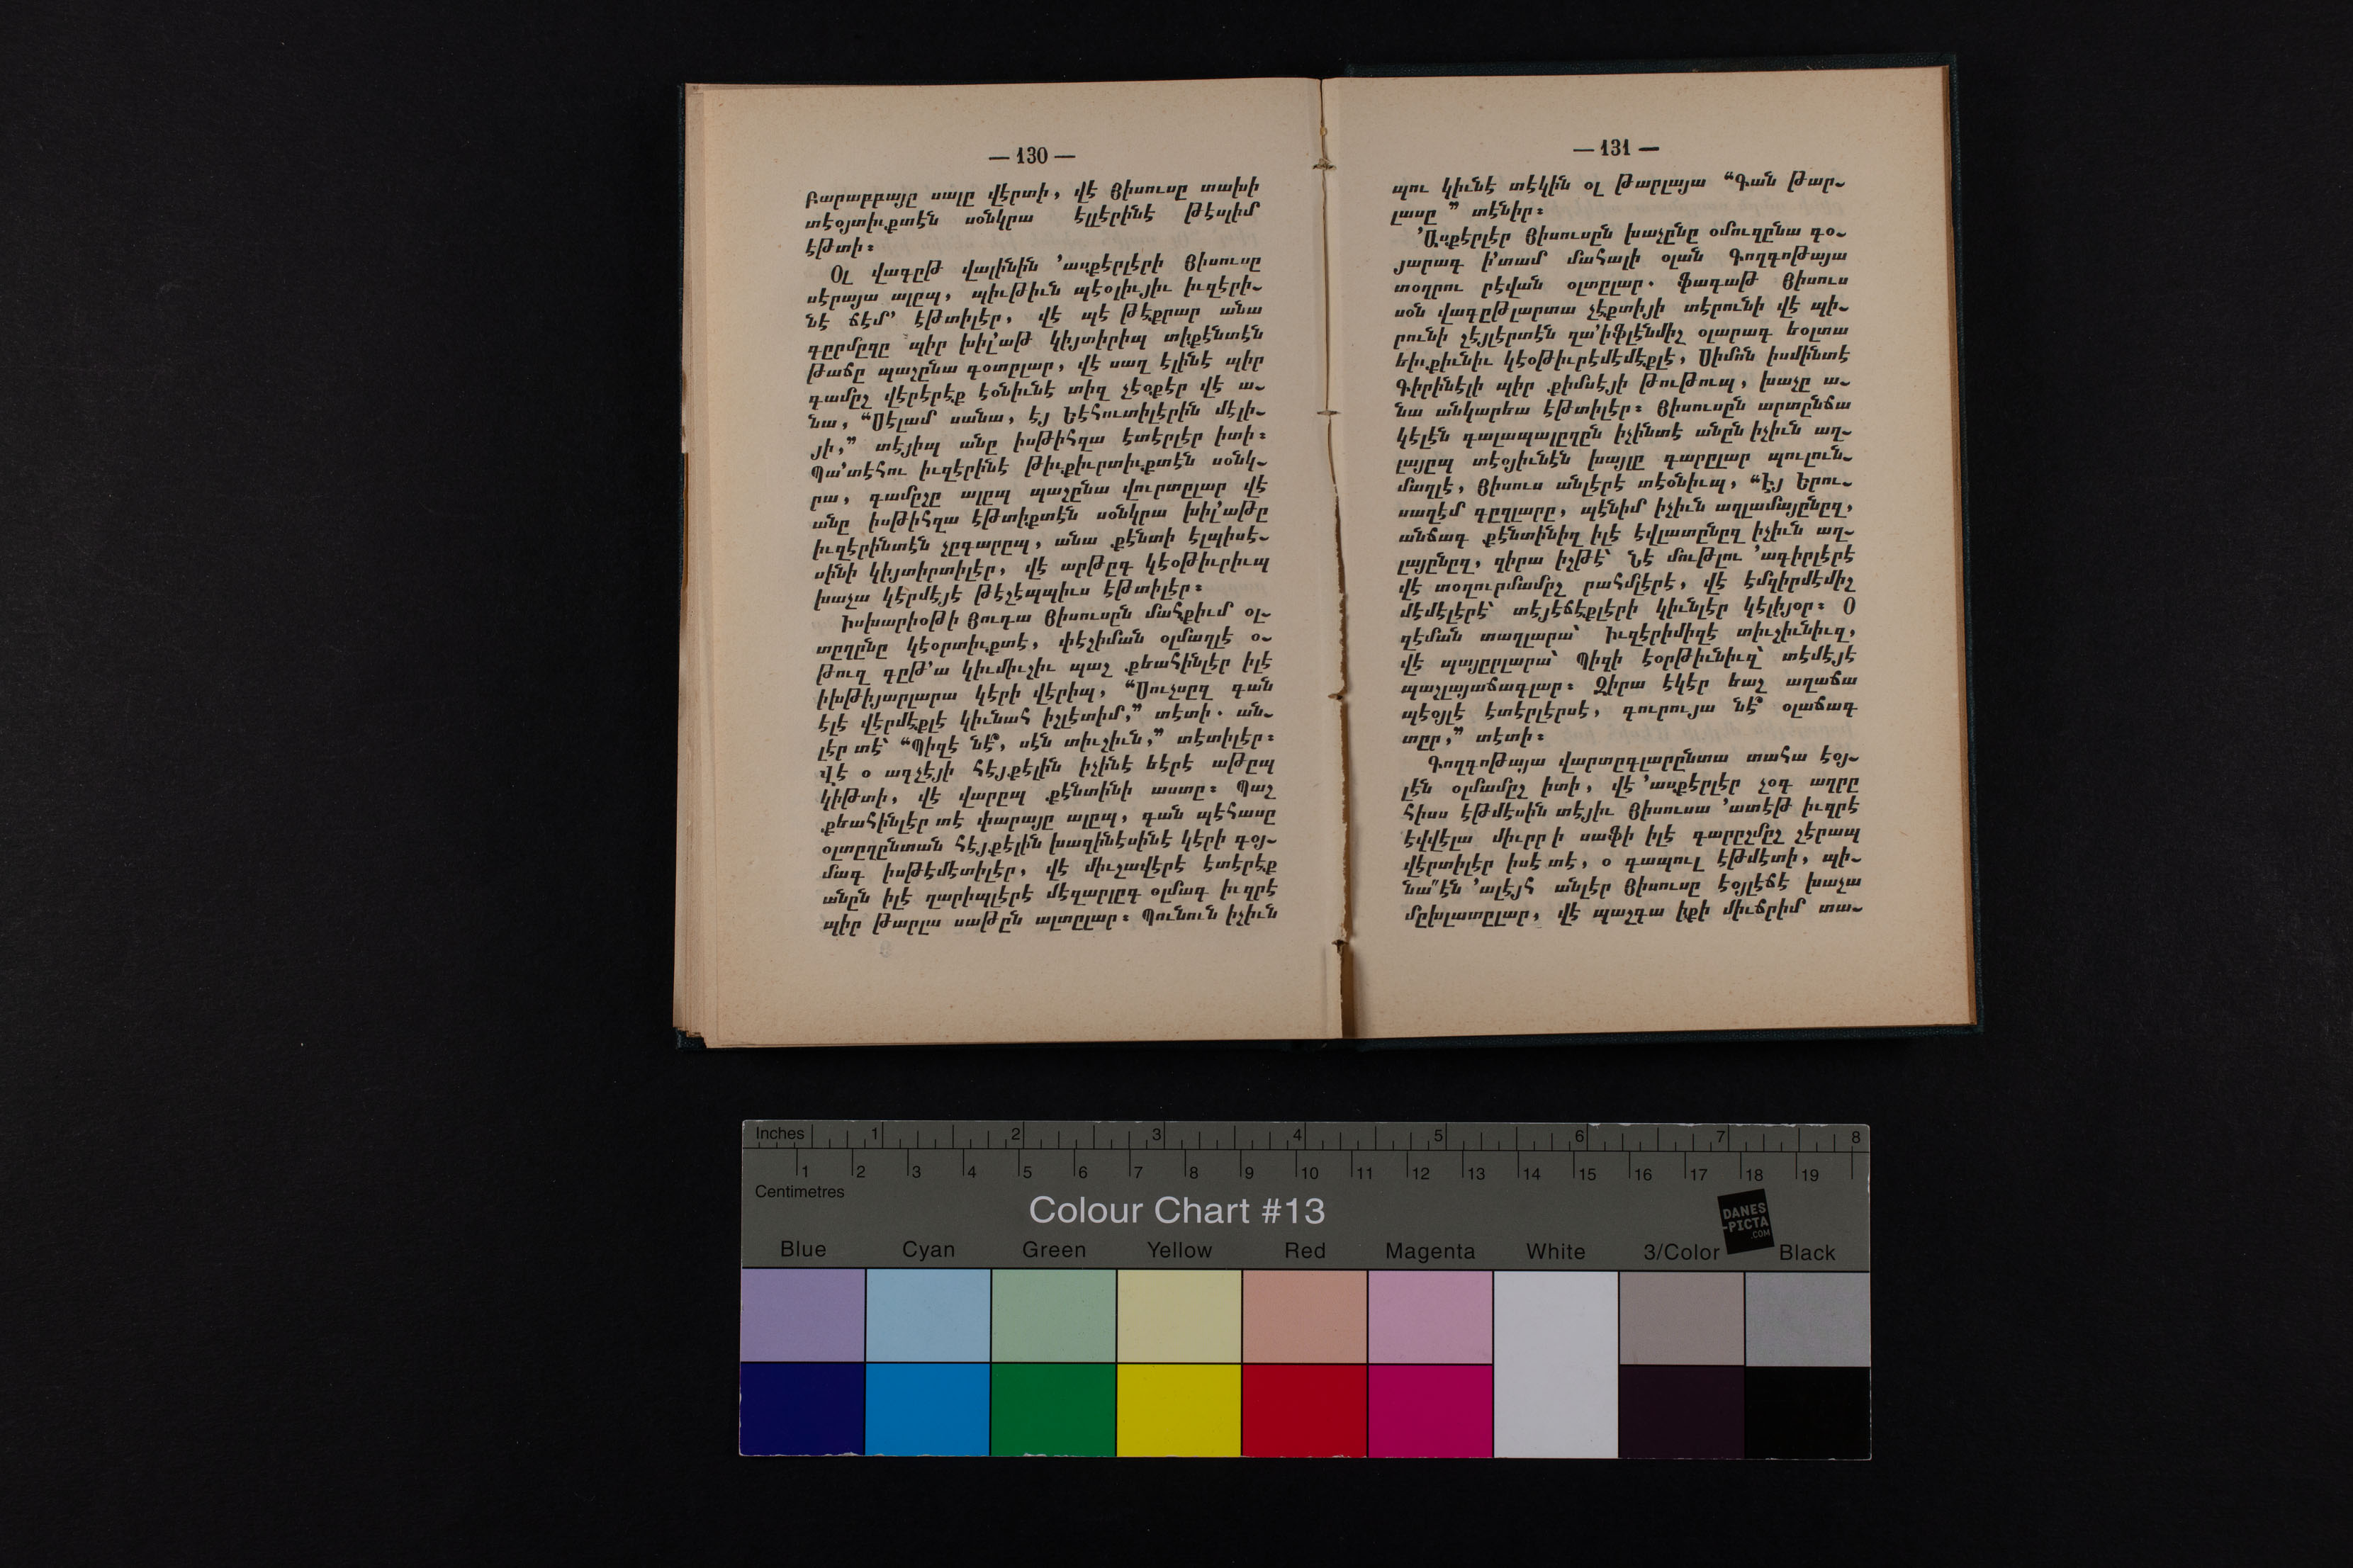 — 130 —
Բարաբբայը սալը վէրտի, վէ Յիսուսը տախի
տէօյտիւքտէն սօնկրա էլլէրինէ թէսլիմ
էթտի։
Օլ վագըթ վալինին ՚ասքէրլէրի Յիսուսը
սէրայա ալըպ, պիւթիւն պէօլիւյիւ իւզէրի֊
նէ ճէմ՚ էթտիլէր, վէ պէ թէքրար անա
գըրմըզը պիր խիլ՚աթ կիյտիրիպ տիքէնտէն
թաճը պաշընա գօտըլար, վէ սաղ էլինէ պիր
գամըշ վէրէրէք էօնիւնէ տիզ չէօքէր վէ ա֊
նա, “Սէլամ սանա, էյ Եէհուտիլէրին մէլի֊
յի,” տէյիպ անը իսթիհզա էտէրլէր իտի։
Պա՚տէհու իւզէրինէ թիւքիւրտիւքտէն սօնկ֊
րա, գամըշը ալըպ պաշընա վուրտըլար վէ
անը իսթիհզա էթտիքտէն սօնկրա խիլ՚աթը
իւզէրինտէն չըգարըպ, անա քէնտի էլպիսէ֊
սինի կիյտիրտիլէր, վէ արթըգ կէօթիւրիւպ
խաչա կէրմէյէ թէշէպպիւս էթտիլէր։
Իսխարիօթի Յուդա Յիսուսըն մահքիւմ օլ֊
տըղընը կէօրտիւքտէ, փէշիման օլմաղլէ օ֊
թուզ գըթ՚ա կիւմիւշիւ պաշ քեահինլէր իլէ
իխթիյարլարա կէրի վէրիպ, “Սուչսըզ գան
էլէ վէրմէքլէ կիւնահ իշլէտիմ,” տէտի. ան֊
լէր տէ՝ “Պիզէ նէ՞, սէն տիւշիւն,” տէտիլէր։
Վէ օ ագչէյի հէյքէլին իչինէ եէրէ աթըպ
կիթտի, վէ վարըպ քէնտինի աստը։ Պաշ
քեահինլէր տէ փարայը ալըպ, գան պէհասը
օլտըղընտան հէյքէլին խազինէսինէ կէրի գօյ֊
մագ իսթէմէտիլէր, վէ միւշավէրէ էտէրէք
անըն իլէ ղարիպլէրէ մէզարլըգ օլմագ իւզրէ
պիր թարլա սաթըն ալտըլար։ Պունուն իչիւն
— 131 —
պու կիւնէ տէկին օլ թարլայա “Գան թար֊
լասը ” տէնիր։
՚Ասքէրլէր Յիսուսըն խաչընը օմուզընա գօ֊
յարագ ի՚տամ մահալի օլան Գողգոթայա
տօղրու րէվան օլտըլար. ֆագաթ Յիսուս
սօն վագըթլարտա չէքտիյի տէրունի վէ պի֊
րունի շէյլէրտէն զա՚իֆլէնմիշ օլարագ եօլտա
եիւքիւնիւ կէօթիւրէմէմէքլէ, Սիմոն իսմինտէ
Գիրինէլի պիր քիմսէյի թութուպ, խաչը ա֊
նա անկարեա էթտիլէր։ Յիսուսըն արտընճա
կէլէն գալապալըղըն իչինտէ անըն իչիւն աղ֊
լայըպ տէօյիւնէն խայլը գարըլար պուլուն֊
մաղլէ, Յիսուս անլէրէ տէօնիւպ, “Էյ Երու֊
սաղէմ գըզլարը, պէնիմ իչիւն աղլամայընըզ,
անճագ քէնտինիզ իլէ էվլատընըզ իչիւն աղ֊
լայընըզ, զիրա իշթէ՝ Նէ մութլու ՚ագիրլէրէ
վէ տօղուրմամըշ րահմլէրէ, վէ էմզիրմէմիշ
մէմէլէրէ՝ տէյէճէքլէրի կիւնլէր կէլիյօր։ Օ
զէման տաղլարա՝ Իւզէրիմիզէ տիւշիւնիւզ,
վէ պայըրլարա՝ Պիզի էօրթիւնիւզ՝ տէմէյէ
պաշլայաճագլար։ Զիրա էկէր եաշ աղաճա
պէօյլէ էտէրլէրսէ, գուրույա նէ՞ օլաճագ
տըր,” տէտի։
Գողգոթայա վարտըգլարընտա տահա էօյ֊
լէն օլմամըշ իտի, վէ ՚ասքէրլէր չօգ աղրը
հիսս էթմէսին տէյիւ Յիսուսա ՚ատէթ իւզրէ
էվվէլա միւրր ի սաֆի իլէ գարըշմըշ շէրապ
վէրտիլէր իսէ տէ, օ գապուլ էթմէտի, պի֊
նա՚՚էն ՚ալէյհ անլէր Յիսուսը էօյլէճէ խաչա
մըխլատըլար, վէ պաշգա իքի միւճրիմ տա֊
Inches 1 2 3 4 5 6 7 8
1 2 3 4 5 6 7 8 9 10 11 12 13 14 15 16 17 18 19
Centimetres
Colour Chart #13
DANES
-PICTA
.COM
Blue Cyan Green Yellow Red Magenta White 3/Color Black